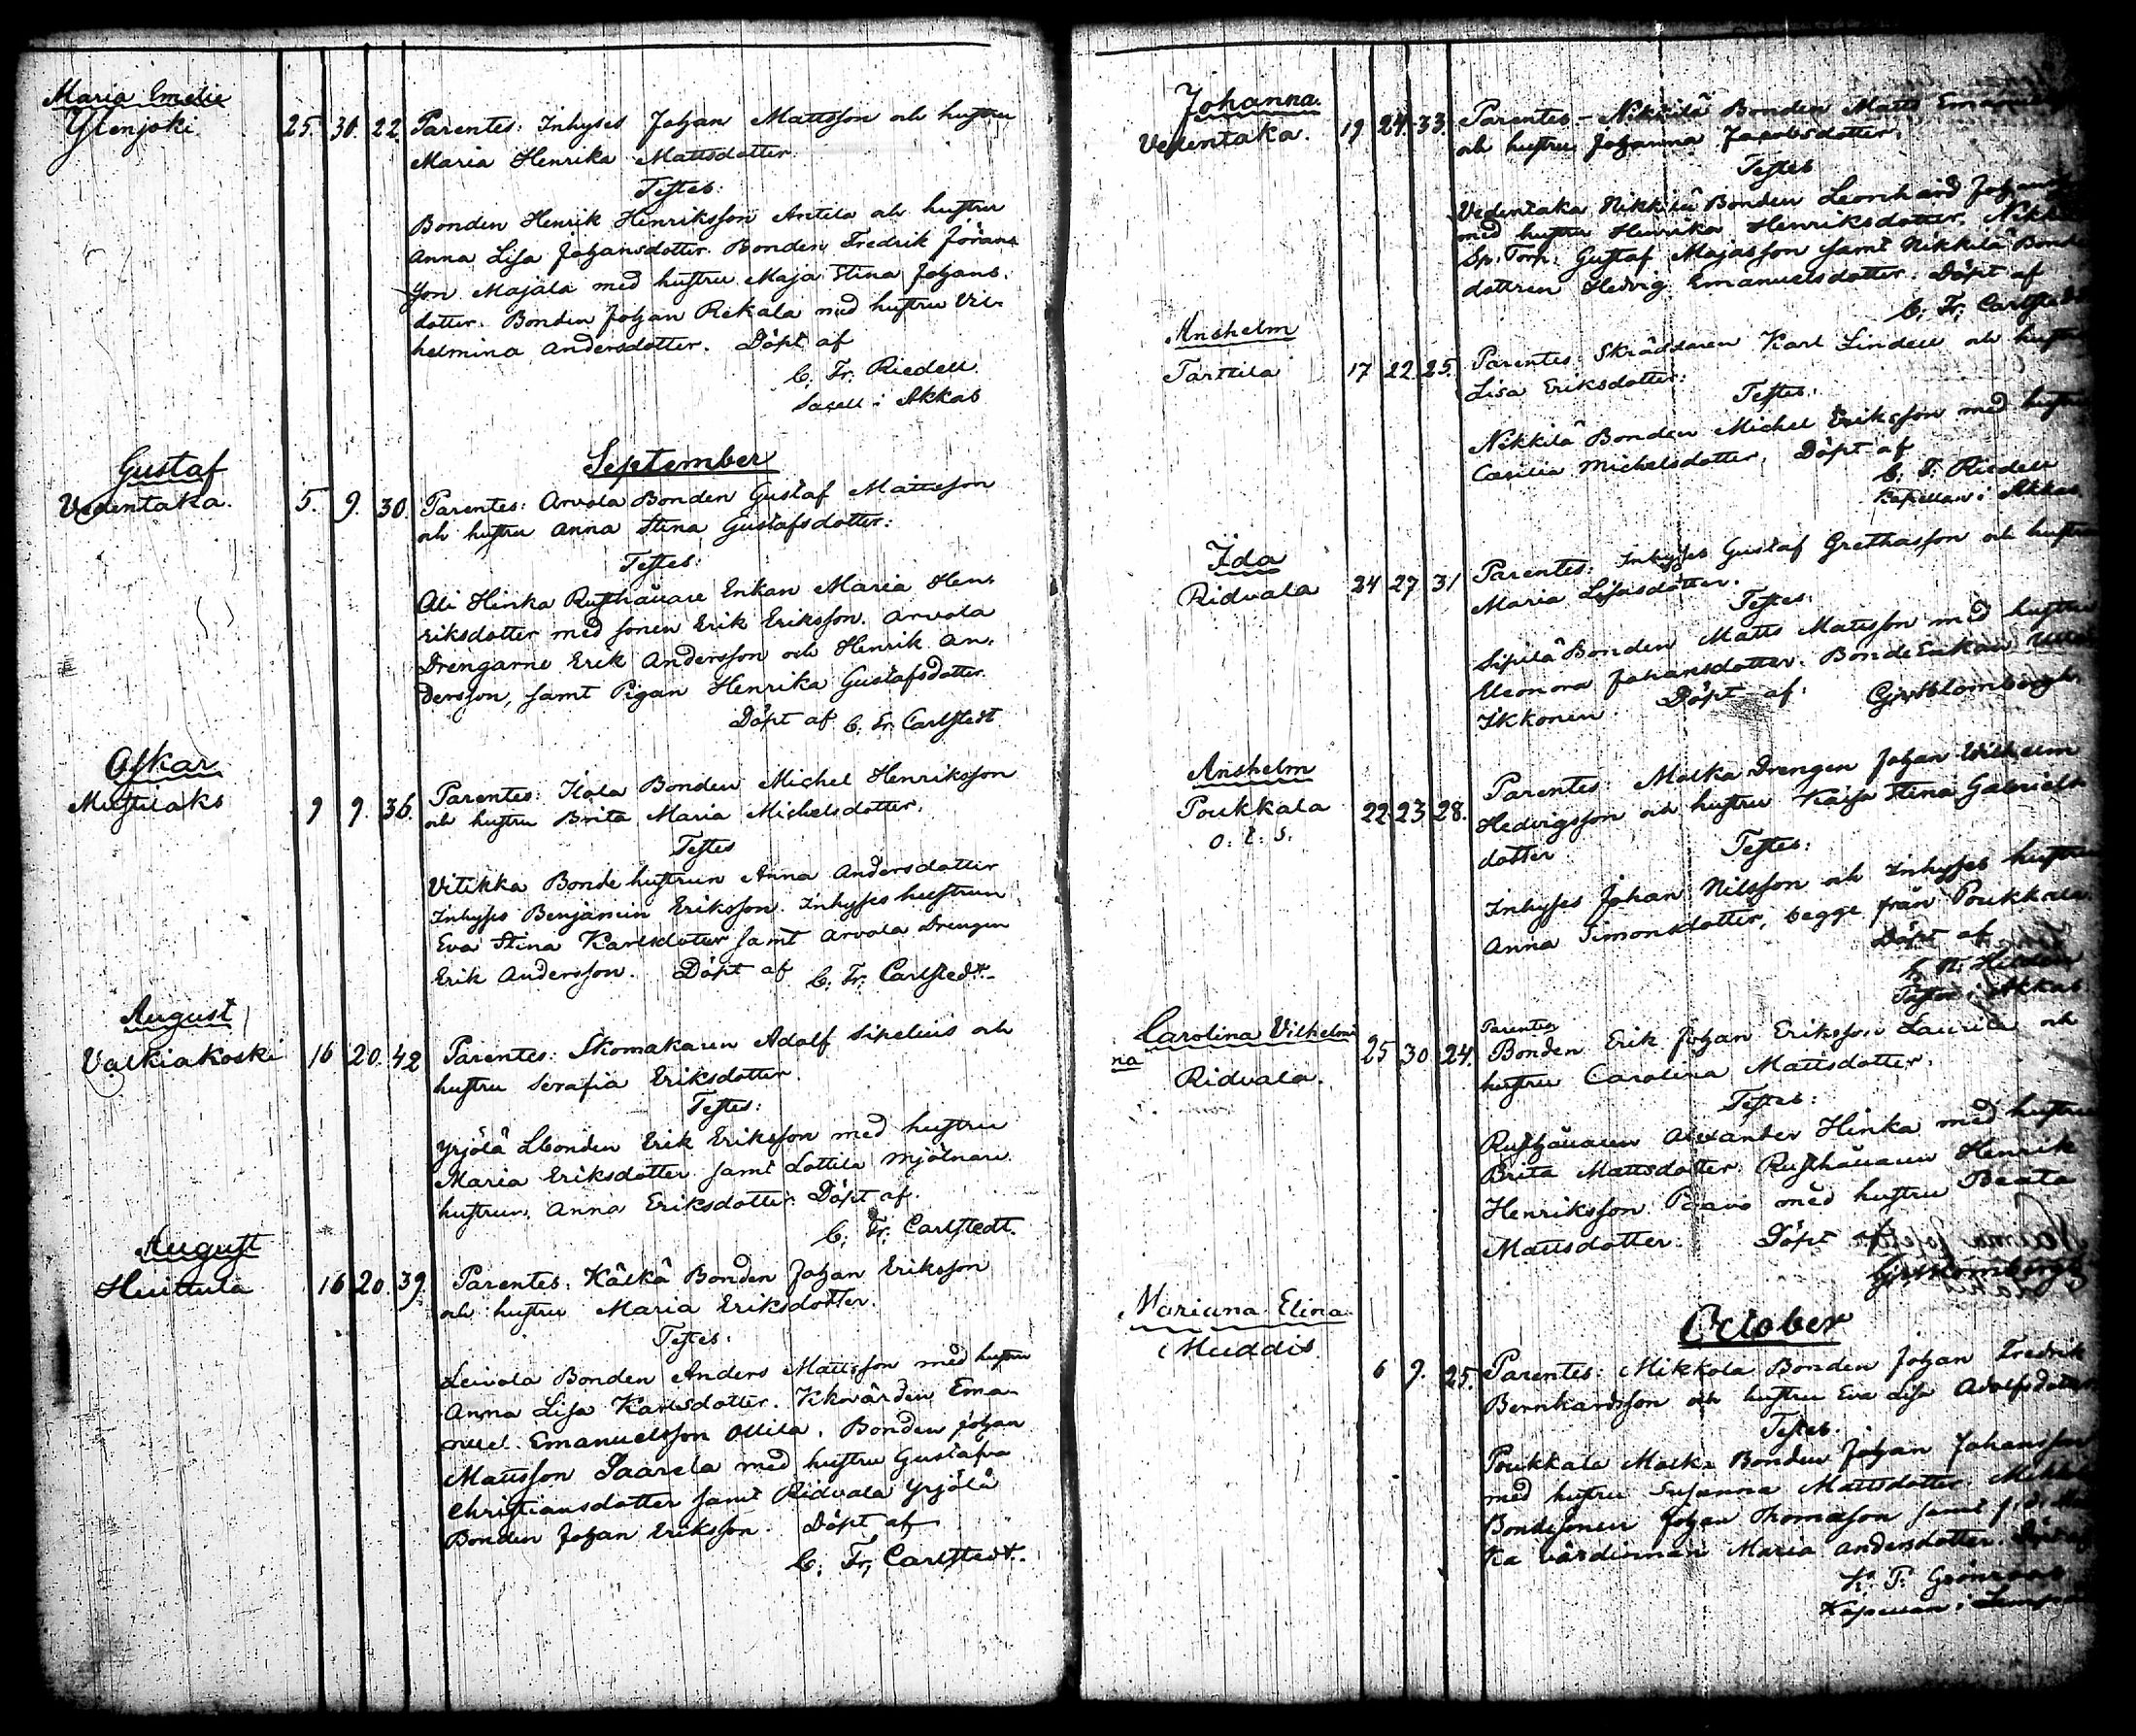 Maria Emelie
Ylenjoki 25. 30. 22. Parentes: Inhyses Johan Mattsson och hustru
Maria Henrika Mattsdotter.
Testes:
Bonden Henrik Henriksson Antila och hustru
Anna Lisa Johansdotter. Bonden Fredrik Jörans
son Majala med hustru Maja Stina Johans.
dotter. Bonden Johan Rekala med hustru Vil-
helmina Andersdotter. Döpt af
C. Fr. Riedell
Sacell i Akkas
September
Gustaf
Vedentaka. 5. 9. 30. Parentes: Arvola Bonden Gustaf Mattsson
och hustru Anna Stina Gustafsdotter:
Testes:
Ali Hinka Rusthållare Enkan Maria Hen-
riksdotter med sonen Erik Eriksson. Arvola
Drengarne Erik Andersson och Henrik An-
dersson, samt Pigan Henrika Gustafsdotter.
Döpt af C. Fr. Carlstedt
Oskar
9 9. 36. Parentes: Isola Bonden Michel Henriksson
och hustru Brita Maria Michelsdotter.
Testes
Vitikka Bonde hustrun Anna Andersdotter
Inhyses Benjamin Eriksson. Inhyses hustrun
Eva Stina Karlsdotter samt Arvola Drengen
Erik Andersson. Döpt af C. Fr. Carlstedt.
August
Valkiakoski 16 20. 42 Parentes: Skomakaren Adolf Sipelius och
hustru Serafia Eriksdotter.
Testes:
Yrjölä Bonden Erik Eriksson med hustru
Maria Eriksdotter samt Lottila Mjölnare
hustrun. Anna Eriksdotter. Döpt af.
C. Fr. Carlstedt.
August
Huittula 16 20. 39. Parentes: Kälkä Bonden Johan Eriksson
och hustru Maria Eriksdotter.
Testes:
Leivola Bonden Anders Mattsson med hustru
Anna Lisa Karlsdotter. Kkovärden Ema-
nuel Emanuelsson Ollila. Bonden Johan
Mattsson Saarela med hustru Gustafva
Christiansdotter samt Ridvala Yrjölä
Bonden Johan Eriksson. Döpt af
C. Fr. Carlstedt.
Johanna.
Vedentaka. 19 24. 33. Parentes - Nikkilä Bonden Matts
och hustru Johanna Jacobsdotter.
Testes
Vedentaka Nikkilä Bonden Leonhard
med hustru Henrika Henriksdotter.
Sp. Torp. Gustaf Majasson samt Nikkilä
dottren Hedvig Emanuelsdotter. Döpt af
C. Fr. Carlstedt
Anshelm
Tarttila 17 22. 25. Parentes: Skräddaren Karl Lindell och hustru
Lisa Eriksdotter:
Testes:
Nikkilä Bonden Michel Eriksson med hustru
Cæsilia Michelsdotter. Döpt af
C. F. Riedell
Kapellan i Akkas
Ida
Ridvala 24 27 31 Parentes: Inhyses Gustaf Grethasson och hustru
Maria Lisasdotter.
Testes:
Sipilä Bonden Matts Mattsson med hustru
Eleonora Johansdotter. Bonde Enkan
Ikkonen. Döpt af. Blombergh.
Anshelm
Poukkala
o. ä. s. 22. 23. 28. Parentes: Malka Drengen Johan Wilhelm
Hedvigsson och hustru Kajsa Stina Gabriels-
dotter
Testes:
Inhyses Johan Nilsson och Inhyses hustru
Anna Simonsdotter, begge från Poukkala.
Döpt af
Pastor i Akkas
Carolina Vilhelmi
na
Ridvala. 25 30 24. Parentes
Bonden Erik Johan Eriksson Laurila och
hustru Carolina Mattsdotter.
Testes:
Rusthållaren Alexander Hinka med hustru
Brita Mattsdotter. Rusthållaren Henrik
Henriksson Paavo med hustru Beata
Mattsdotter. Döpt af
Blombergh
October
Mariana Elina
Muddis 6 9. 25. Parentes: Mikkola Bonden Johan Fredrik
Bernhardsson och hustru Eva Lisa Adolfsdotter
Testes.
Poukkala Malka Bonden Johan Johansson
med hustru Susanna Mattsdotter.
Bondesonen Johan Thomasson samt
ka värdinnan Maria Andersdotter.
Grönroos
Kapellan i